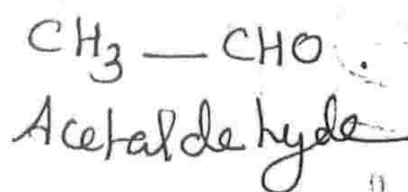 CH₃ — CHO.
Acetaldehyde